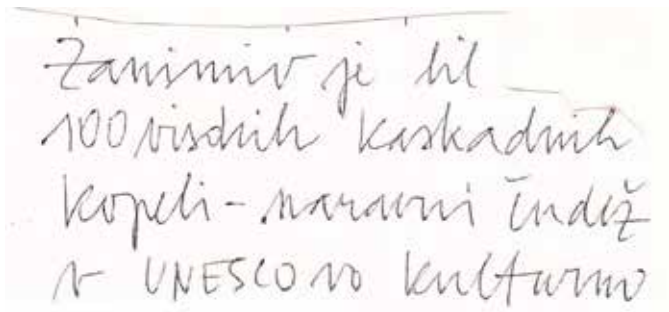 Zanimiv je bil
100 visokih kaskadnih
kopeli - naravni čudež
v UNESCOvo kulturno